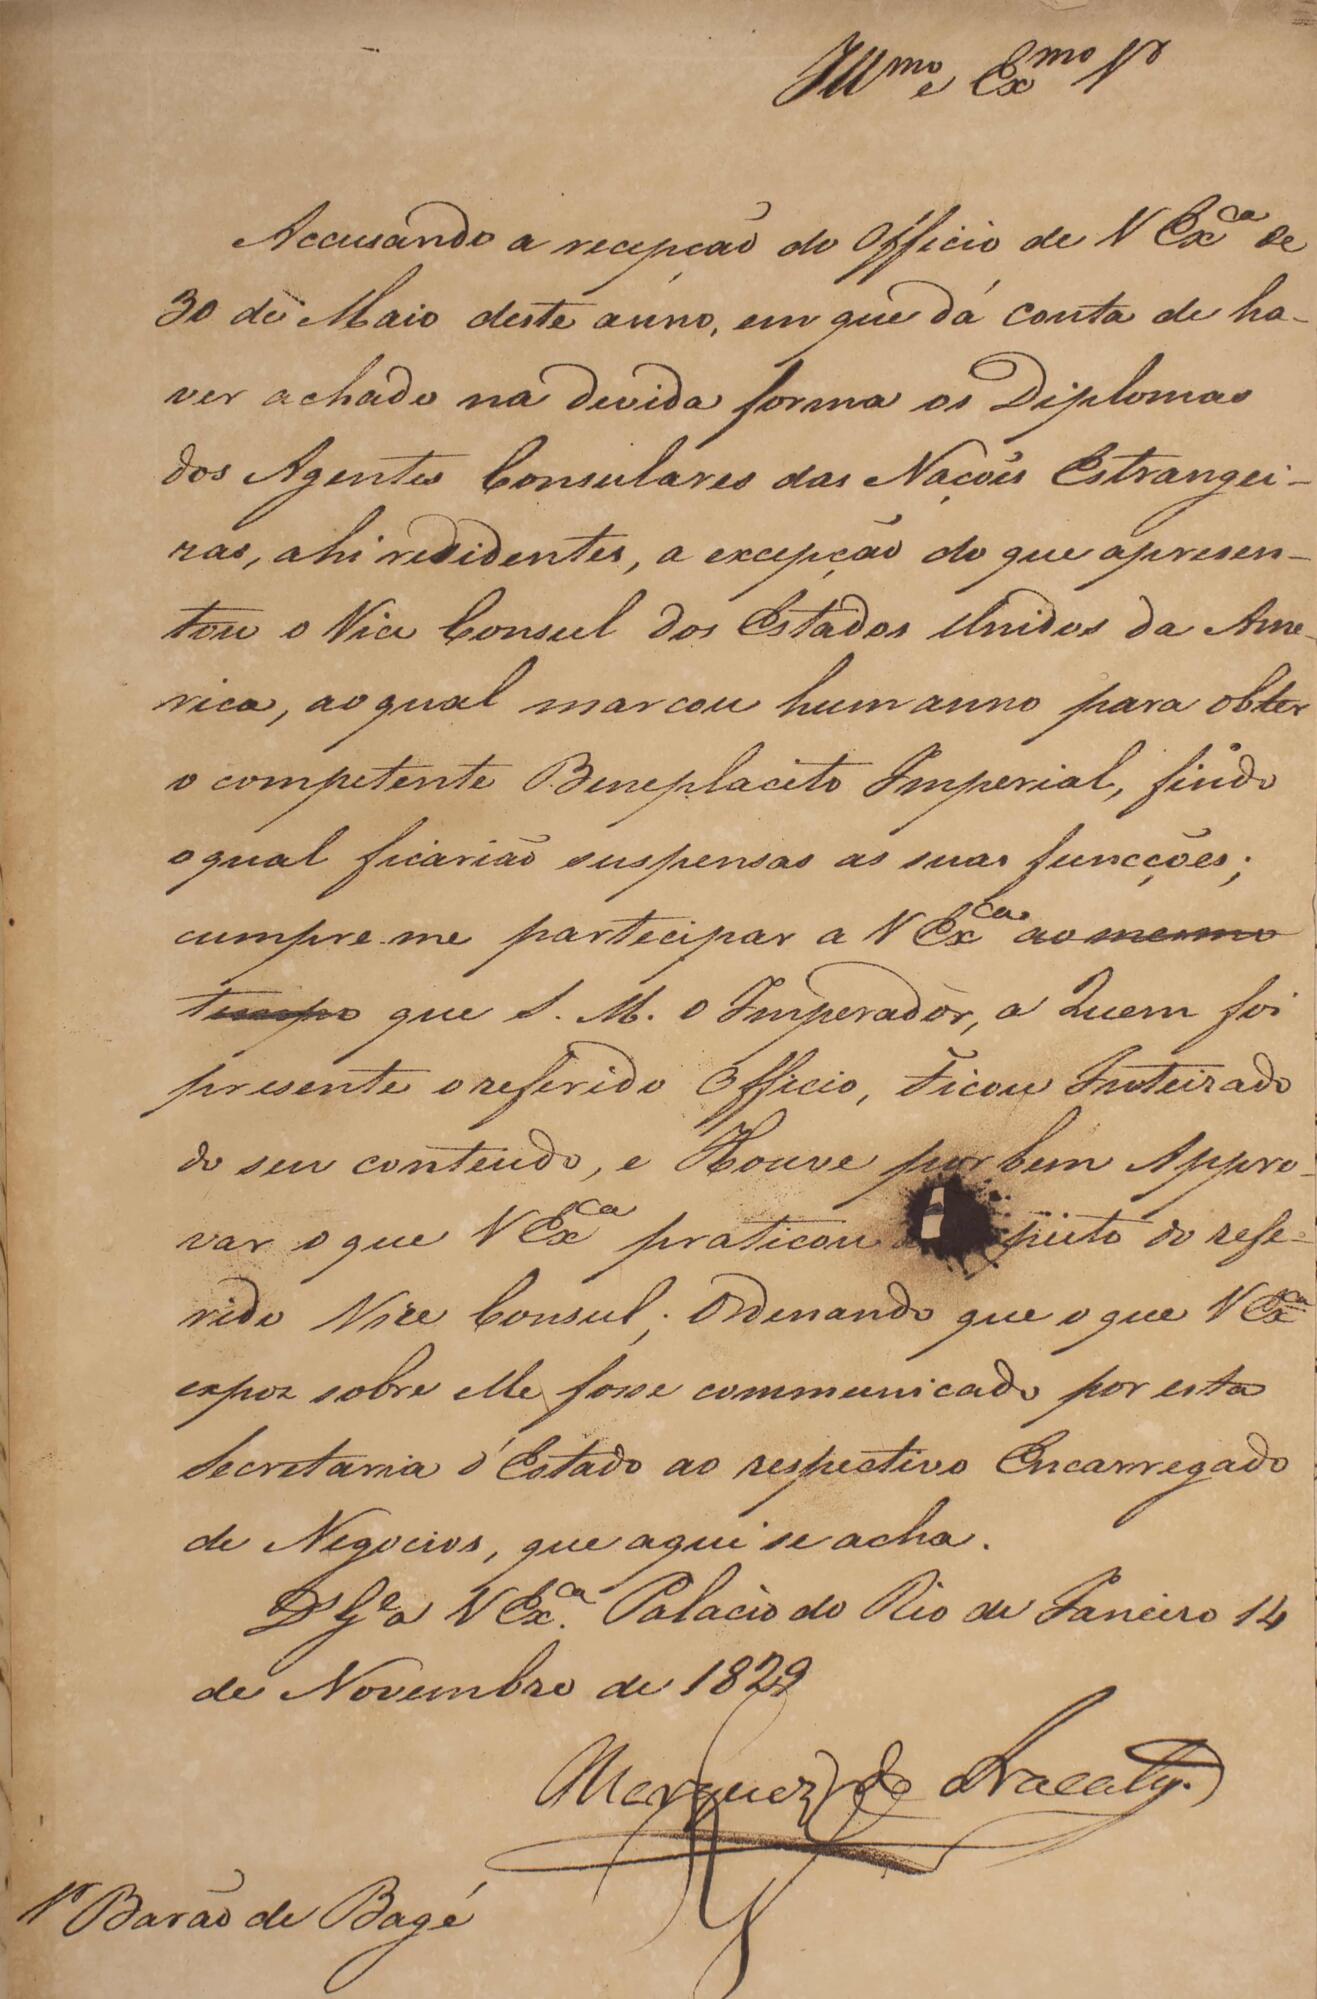 Illmo e Exmo Sr
Accusando a recepção do Officio de V Exca de
30 de Maio deste anno, em que dá conta de ha-
ver achado na devida forma os Diplomas
dos Agentes Consulares das Nações Estrangei-
ras, ahi residentes, a excepção do que apresen-
tou o Vice Consul dos Estados Unidos da Ame-
rica, ao qual marcou hum anno para obter
o competente Beneplacito Imperial, findo
o qual ficarião suspensas as suas funcções;
cumpre-me participar a V Exca ao mesmo
tempo que S. M. o Imperador, a Quem foi
presente o referido Officio, Ficou Inteirado
do seu conteudo, e Houve por bem Appro-
var o que V Exca praticou a piito do refe-
rido Vice Consul; Ordenando que o que V Exca
expoz sobre elle fosse communicado por esta
Secretaria d'Estado ao respectivo Encarregado
de Negocios, que aqui se acha.
Ds Ge a V Exca. Palacio do Rio de Janeiro 14
de Novembro de 1829
Marquez de Aracaty.
Sr Barão de Bagé